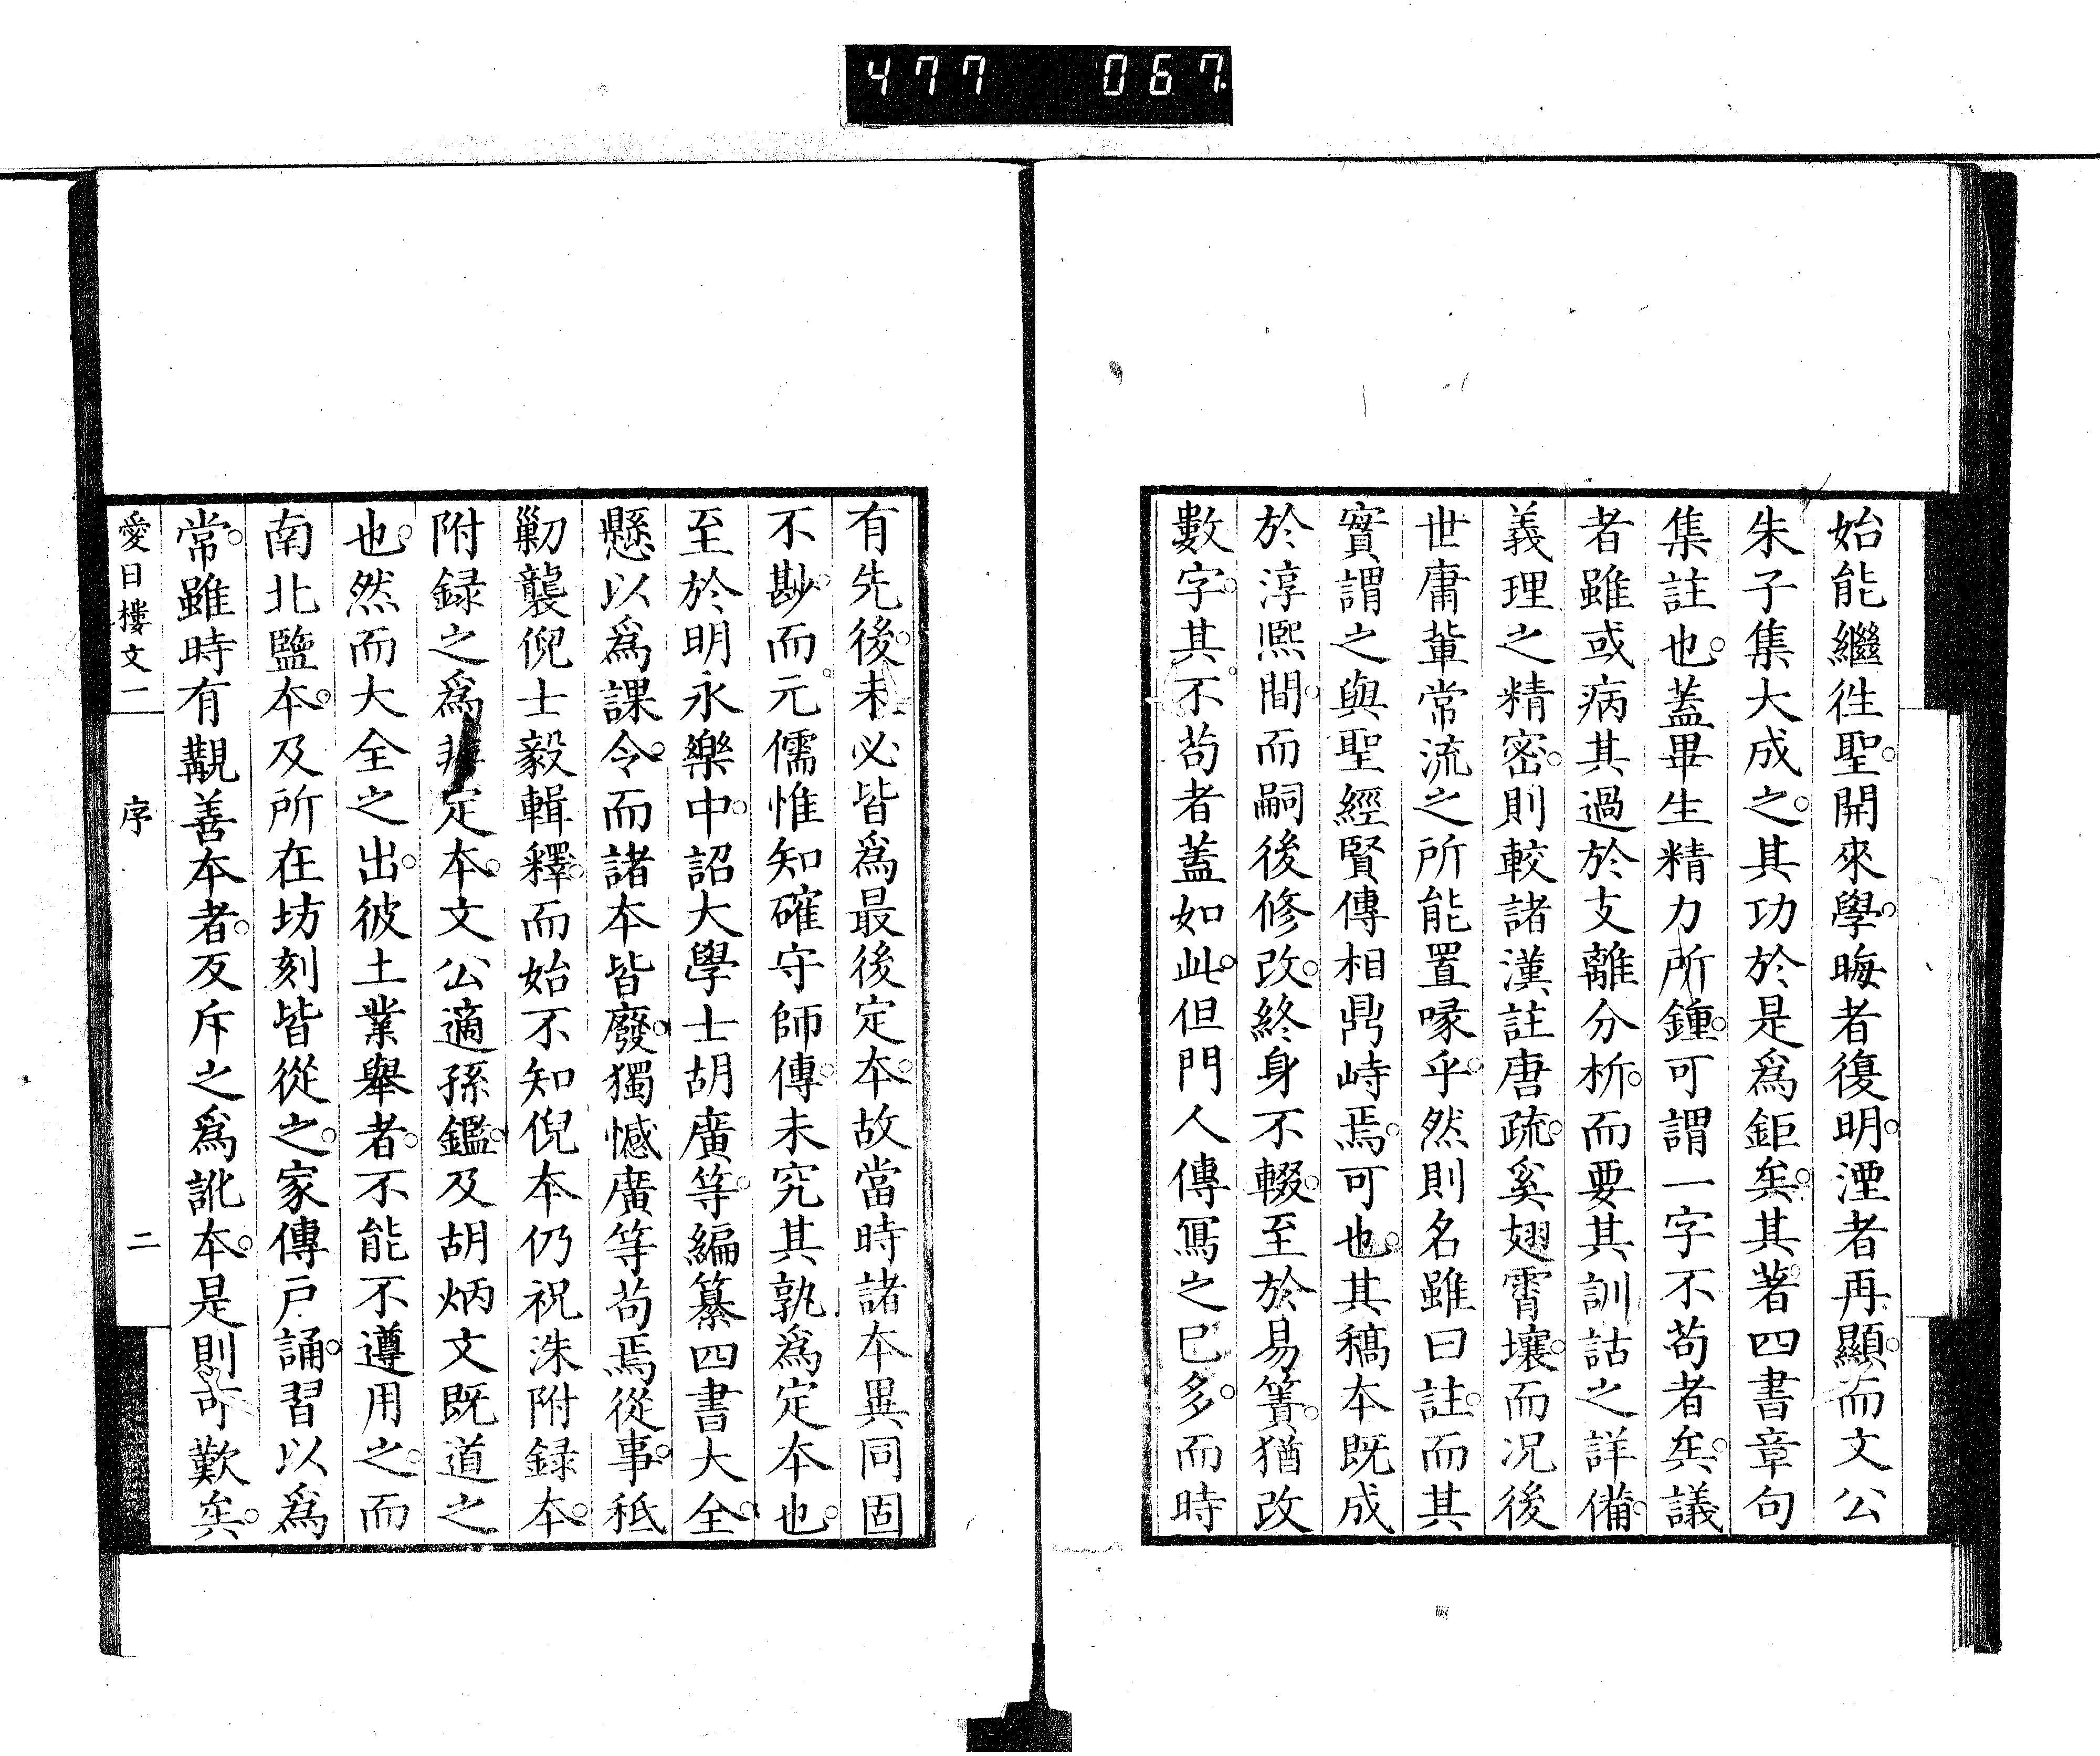 477 067
始能繼徃聖。開來學。晦者復明。湮者再顯。而文公
朱子集大成之。其功於是爲鉅矣。其著四書章句
集註也。蓋畢生精力所鍾。可謂一字不苟者矣。議
者雖或病其過於支離分析。而要其訓詁之詳備。
義理之精密。則較諸漢註唐疏。奚翅霄壤。而况後
世庸輩常流之所能置喙乎。然則名雖曰註。而其
實謂之與聖經賢傳相鼎峙焉。可也。其稿本既成
於淳熙間。而嗣後修改。終身不輟。至於易簀。猶改
數字。其不苟者蓋如此。但門人傳寫之已多。而時
有先後。未必皆爲最後定本。故當時諸本異同固
不尠。而元儒惟知確守師傳。未究其孰爲定本也。
至於明永樂中。詔大學士胡廣等。編纂四書大全。
懸以爲課令。而諸本皆廢。獨憾廣等苟焉從事。秪
勦襲倪士毅輯釋。而始不知倪本仍祝洙附録本。
附録之爲非定本。文公適孫鑑。及胡炳文既道之
也。然而大全之出。彼土業舉者。不能不遵用之。而
南北監本。及所在坊刻皆從之。家傳戸誦。習以爲
常。雖時有覩善本者。反斥之爲訛本。是則可歎矣。
愛日樓文一 序 二